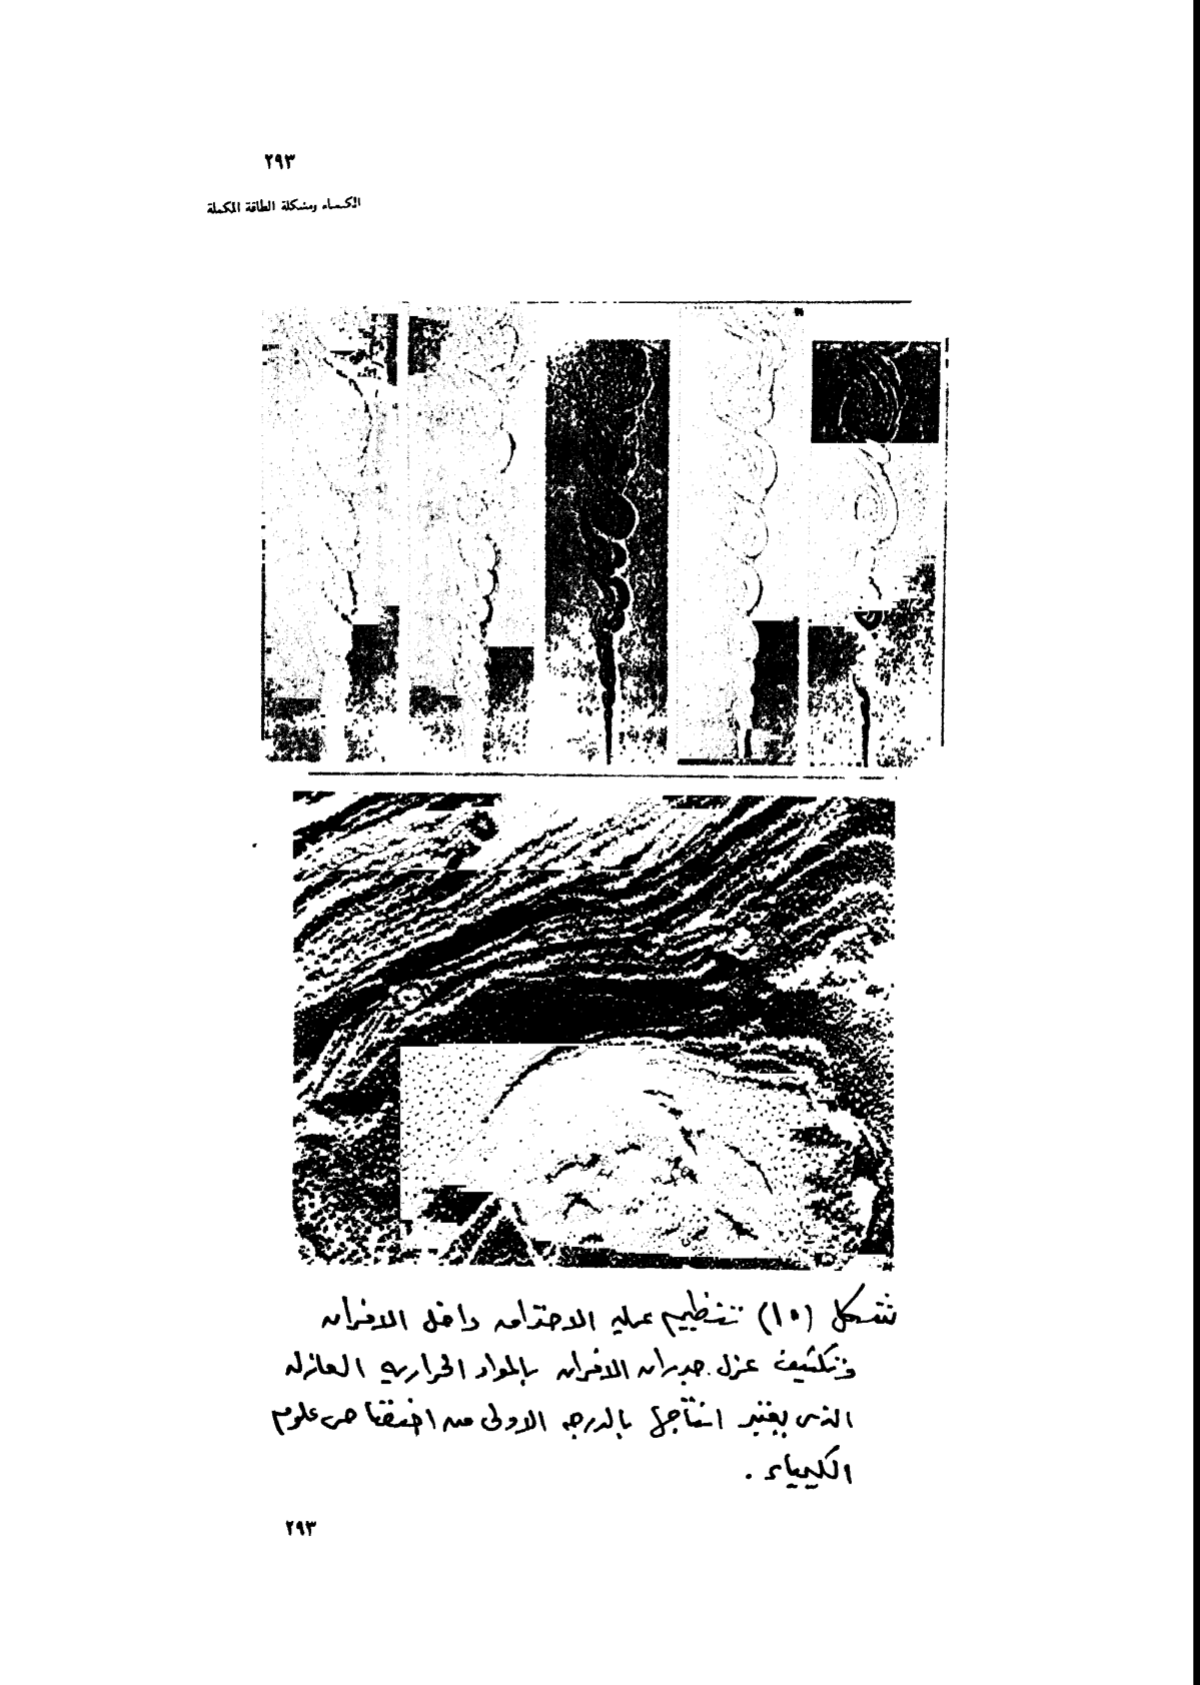 ٢٩٣
الكيمياء ومشكلة الطاقة المكملة
شكل (١٥) تنظيم عملية الاحتراق داخل الافران
وتكثيف عزل جدران الافران بالمواد الحرارية العازلة
الذى يعتبر انتاجها بالدرجة الاولى من اختصاص علوم
الكيمياء .
٢٩٣